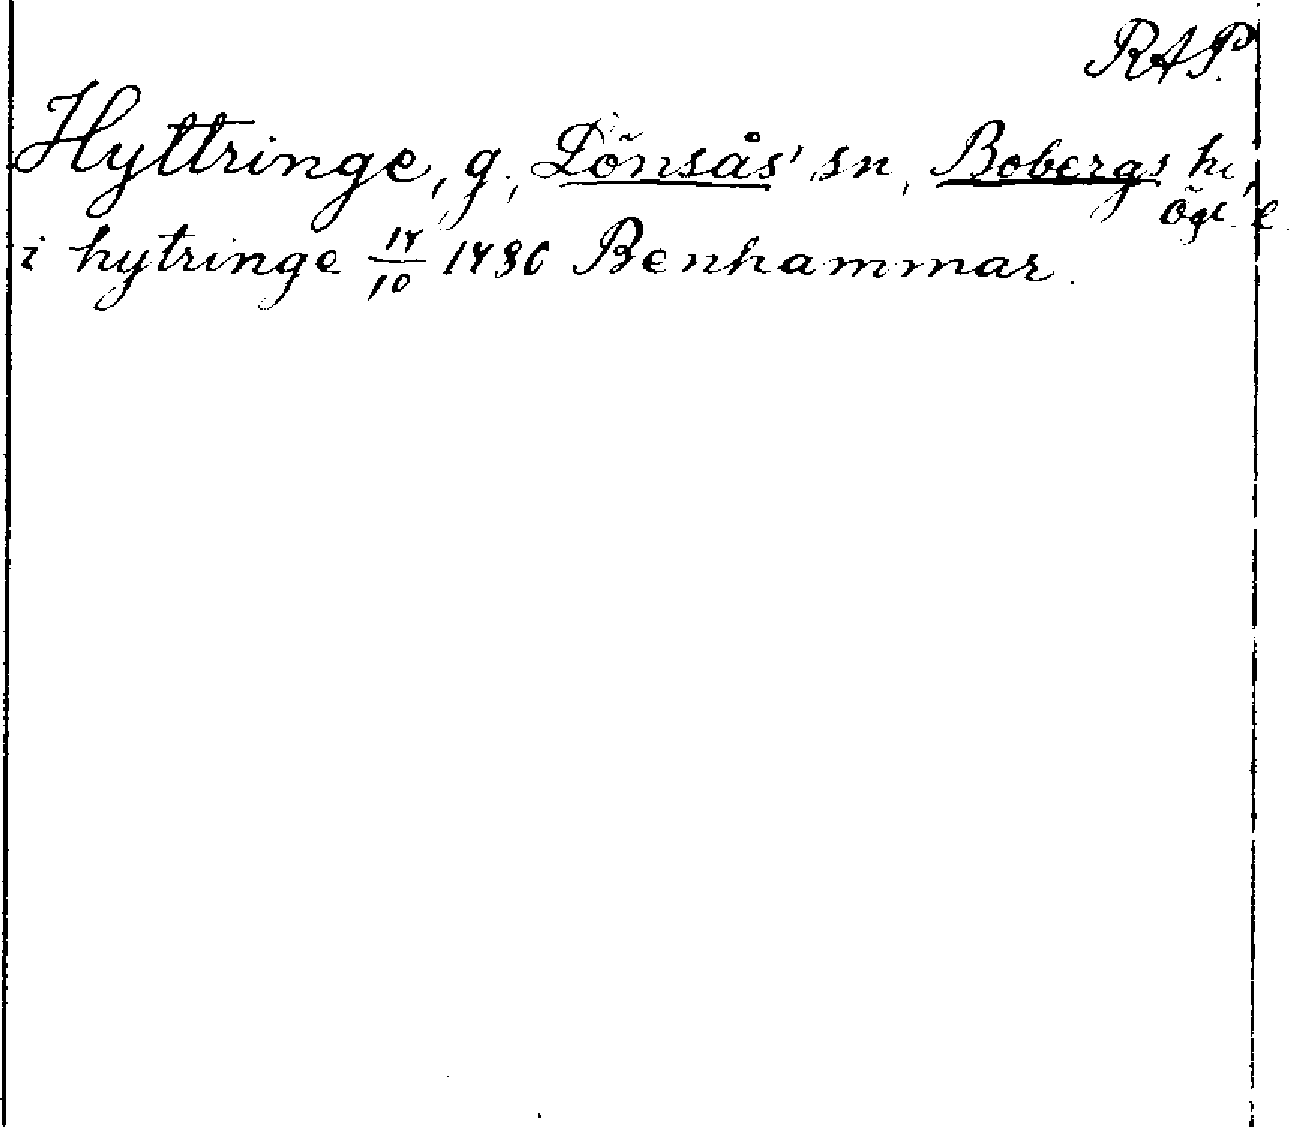 RAP.
Hyttringe, g., Lönsås' sn, Bobergs hd,
Ögl.
i hytringe 14/10 1486 Benhammar.